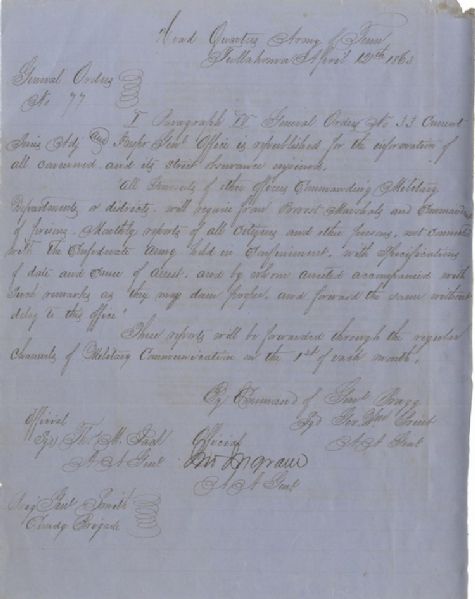 Head Quarters Army of Tenn
Tullahoma April 12th 1863
General Orders
No 77
I Paragraph IV General Orders No 33 Current
Series Adj and Insptr Genl Office is republished for the information of
all concerned and its strict observance enjoined.
All Generals of other offices Commanding Military
Departments or districts will require from Provost Marshals and Commanders
of prisons Monthly reports of all Citizens and other persons, not connected
with The Confederate Army held in Confinement, with specifications
of date and Cause of Arrest, and by whom arrested accompanied with
such remarks as they may deem proper, and forward the same without
delay to this office"
These reports will be forwarded through the regular
channels of Military Communication on the 1st of each month.
By Command of Genl Bragg
Sgd Geo. Wm Brent
A A Genl
Official
Sgd Th. M. Jack Official
A A Genl
A A Genl
Brig Genl Smith
Comdg Brigade